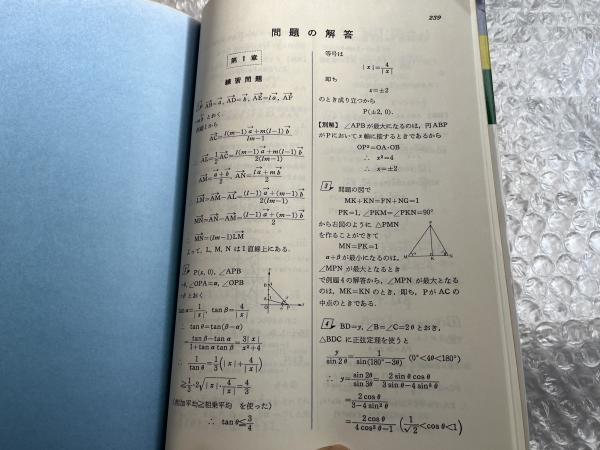 239
問題の解答
第1章
練習問題
1 AB→=a→, AD→=b→, AE→=la→, AF→
=mb→ とおく.
問題1から
AC→=l(m-1)a→+m(l-1)b→/lm-1
AL→=1/2 AC→=l(m-1)a→+m(l-1)b→/2(lm-1)
AM→=a→+b→/2, AN→=la→+mb→/2
LM→=AM→-AL→=(l-1)a→+(m-1)b→/2(lm-1)
MN→=AN→-AM→=(l-1)a→+(m-1)b→/2
MN→=(lm-1)LM→
よって, L, M, N は1直線上にある.
2 P(x, 0), ∠APB
=θ, ∠OPA=α, ∠OPB
=β とおく
tanα=1/|x|, tanβ=4/|x|
∴ tanθ=tan(β-α)
=tanβ-tanα/1+tanα tanβ=3|x|/x²+4
∴ 1/tanθ=1/3(|x|+4/|x|)
≧1/3・2√|x|・4/|x|=4/3
(相加平均≧相乗平均 を使った)
∴ tanθ≦3/4
等号は
|x|=4/|x|
即ち
x=±2
のとき成り立つから
P(±2, 0).
【別解】 ∠APBが最大になるのは, 円ABP
がPにおいてx軸に接するときであるから
OP²=OA・OB
∴ x²=4
∴ x=±2
3 問題の図で
MK+KN=FN+NG=1
PK=1, ∠PKM=∠PKN=90°
から右図のように △PMN
を作ることができて
MN=PK=1
α+βが最小になるのは,
∠MPN が最大となるとき
で例題4の解答から, ∠MPN が最大となる
のは, MK=KN のとき, 即ち, PがACの
中点のときである.
P
M
K
N
4 BD=y, ∠B=∠C=2θ とおき,
△BDC に正弦定理を使うと
y/sin2θ=1/sin(180°-3θ) (0°<4θ<180°)
∴ y=sin2θ/sin3θ=2sinθcosθ/3sinθ-4sin³θ
=2cosθ/3-4sin²θ
=2cosθ/4cos²θ-1 (1/√2<cosθ<1)